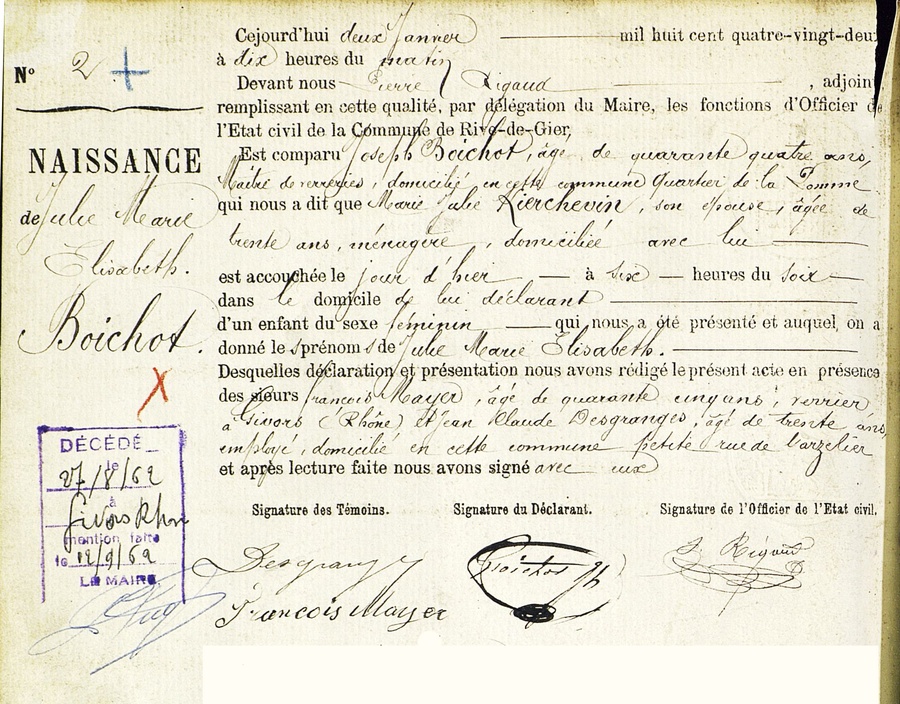 N° 2 +
NAISSANCE
de Julie Marie
Elisabeth.
Boichot.
X
DÉCÉDÉ
le
27/8/62
à
Givors Rhône
mention faite
le 12/9/62
LE MAIRE
Cejourd'hui deux Janvier mil huit cent quatre-vingt-deux
à dix heures du matin
Devant nous Pierre Rigaud, adjoint
remplissant en cette qualité, par délégation du Maire, les fonctions d'Officier de
l'Etat civil de la Commune de Rive-de-Gier,
Est comparu Joseph Boichot, âgé de quarante quatre ans,
Maître de verreries, domicilié en cette commune Quartier de la Pomme
qui nous a dit que Marie Julie Kierchevin, son épouse, âgée de
trente ans, ménagère, domiciliée avec lui
est accouchée le jour d'hier à six heures du soir
dans le domicile de lui déclarant
d'un enfant du sexe féminin qui nous a été présenté et auquel on a
donné les prénoms de Julie Marie Elisabeth.
Desquelles déclaration et présentation nous avons rédigé le présent acte en présence
des sieurs François Mayer, âgé de quarante cinq ans, verrier
à Givors (Rhône) et Jean Claude Desgranges, âgé de trente ans,
employé, domicilié en cette commune petite rue de l'arzelier
et après lecture faite nous avons signé avec eux
Signature des Témoins. Signature du Déclarant. Signature de l'Officier de l'Etat civil.
Desgranges Boichot Jh P Rigaud
François Mayer